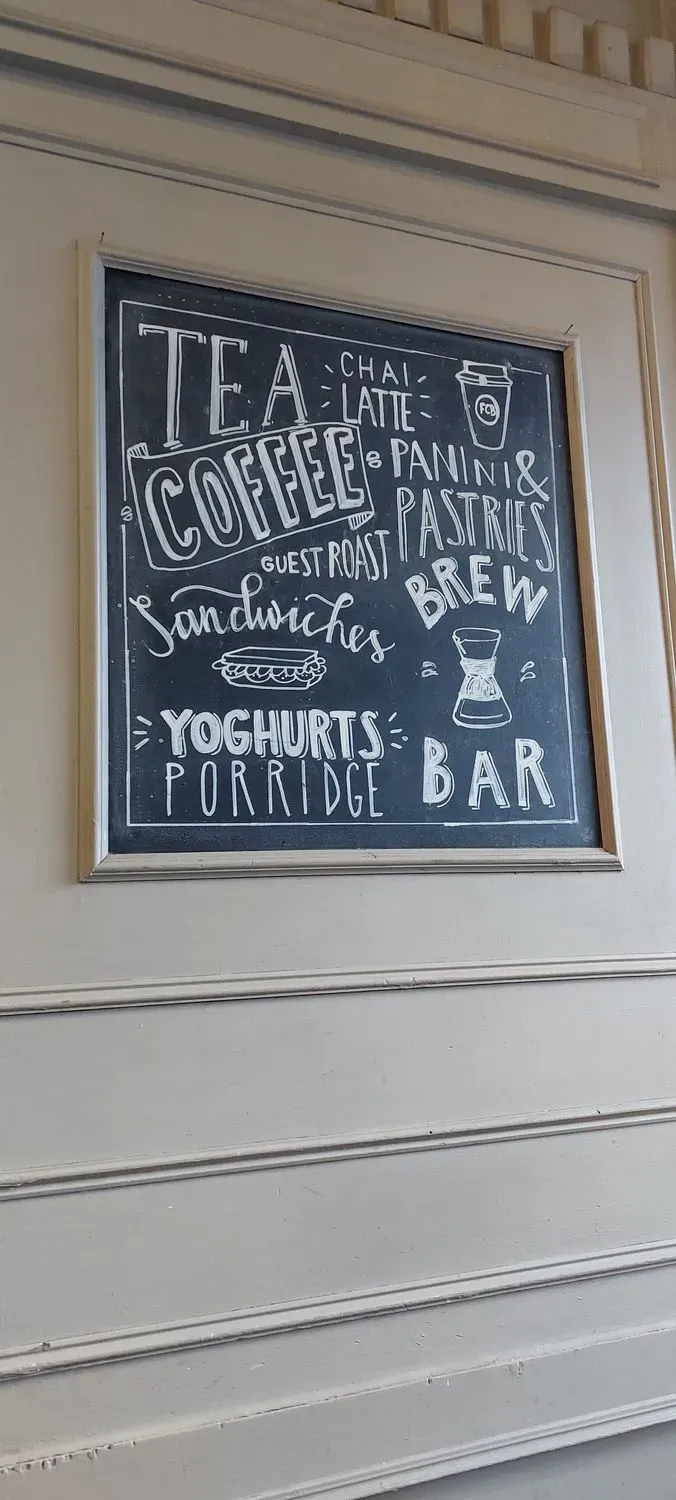 TEA
CHAI
LATTE
FCB
COFFEE
PANINI &
PASTRIES
GUEST ROAST
BREW
Sandwiches
YOGHURTS
PORRIDGE
BAR